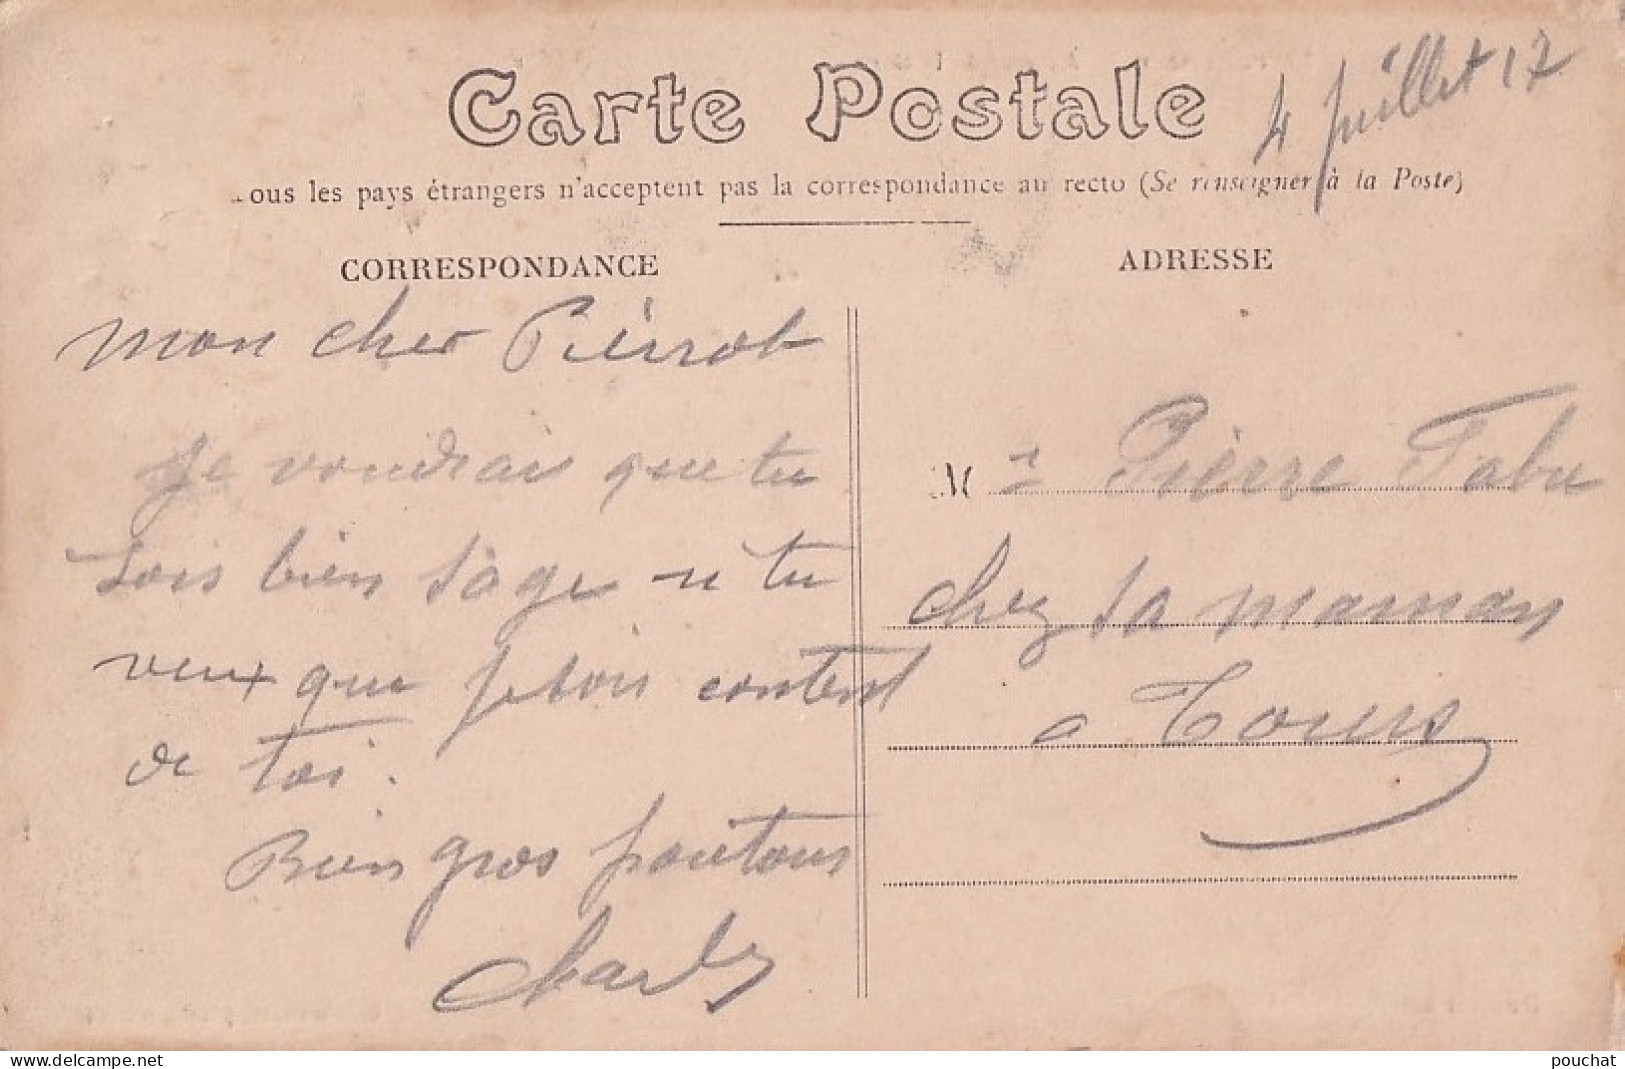 Carte Postale
4 juillet 17
ous les pays étrangers n'acceptent pas la correspondance au recto (Se renseigner à la Poste)
CORRESPONDANCE
ADRESSE
mon cher Pierrot
Je voudrai que tu
sois bien sage si tu
veux que je sois content
de toi.
Bien gros
Charles
M r Pierre Fabu
chez sa maman
a Tours
www.delcampe.net
pouchat